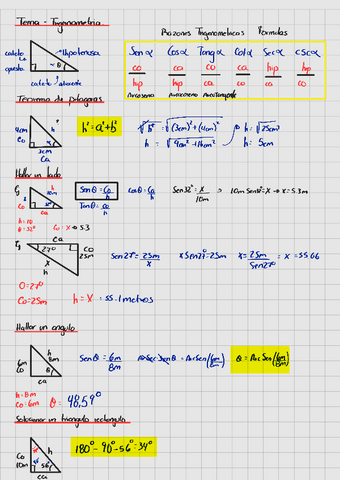 Tema - Trigonometria
Razones Trigonometricas Formulas
cateto opuesto
Hipotenusa
θ
cateto adyacente
Sen α Cos α Tang α Cot α Sec α CSC α
co/hip ca/hip co/ca ca/co hip/ca hip/co
Arcoseno Arcocoseno Arcotangente
Teorema de pitagoras
4cm
Co
h?
3cm
Ca
h² = a² + b²
√h² = √(3cm)² + (4cm)²
h = √25cm²
h = √9cm² + 16cm²
h = 5cm
Hallar un lado
Ej
h
10m
x
co
32°
ca
h = 10
θ = 32°
Co: x → 5.3
Sen θ = Co/h
Tan θ =
cos θ = Ca/h
Sen 32° = x/10m
10m Sen 32° = x → x = 5.3m
Ej
Ca
27°
Co
25m
x
h
Sen 27° = 25m/x
x Sen 27° = 25m
x = 25m/Sen 27°
= x = 55.06
θ = 27°
Co = 25m
h = x = 55.1 metros
Hallar un angulo
6m
Co
h
8m
θ
ca
Sen θ = 6m/8m
θ = Arc Sen (6m/8m)
h = 8m
Co = 6m
θ = 48,59°
Solucionar un triangulo rectangulo
Co
10m
h
56°
Ca
180° - 90° - 56° = 34°